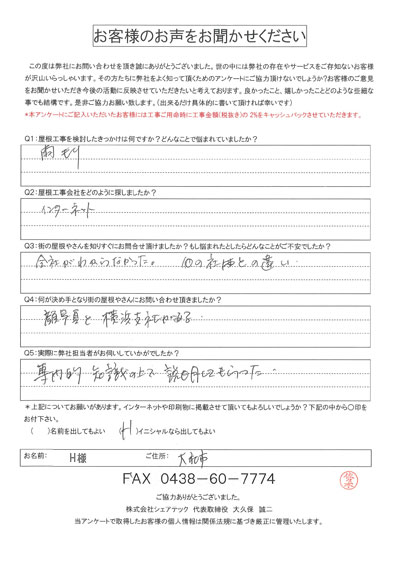 お客様のお声をお聞かせください
この度は弊社にお問い合わせを頂き誠にありがとうございました。世の中には弊社の存在やサービスをご存知ないお客様
が沢山いらっしゃいます。その方たちに弊社をよく知って頂くためのアンケートにご協力頂けないでしょうか?お客様のご意見
をお聞かせいただき今後の活動に反映させていただきたいと考えております。良かったこと、嬉しかったことどのような些細な
事でも結構です。是非ご協力お願い致します。(出来るだけ具体的に書いて頂ければ幸いです)
*本アンケートにご記入いただいたお客様には工事ご用命時に工事金額(税抜き)の2%をキャッシュバックさせていただきます。
Q1:屋根工事を検討したきっかけは何ですか?どんなことで悩まれていましたか?
雨もり
Q2:屋根工事会社をどのように探しましたか?
インターネット
Q3:街の屋根やさんを知りすぐにお問合せ頂けましたか?もし悩まれたとしたらどんなことがご不安でしたか?
会社がわからなかった。 他の社との違い
Q4:何が決め手となり街の屋根やさんにお問い合わせ頂きましたか?
と 横浜支社がある
Q5:実際に弊社担当者がお伺いしていかがでしたか?
専門的 知識の上で 説明してもらった
*上記についてお願いがあります。インターネットや印刷物に掲載させて頂いてもよろしいでしょうか?下記の中から〇印を
お付下さい。
( )名前を出してもよい (H)イニシャルなら出してもよい
お名前: H様 ご住所: 大和市
FAX 0438-60-7774
ご協力ありがとうございました。
株式会社シェアテック 代表取締役 大久保 誠二
当アンケートで取得したお客様の個人情報は関係法規に基づき厳正に管理いたします。